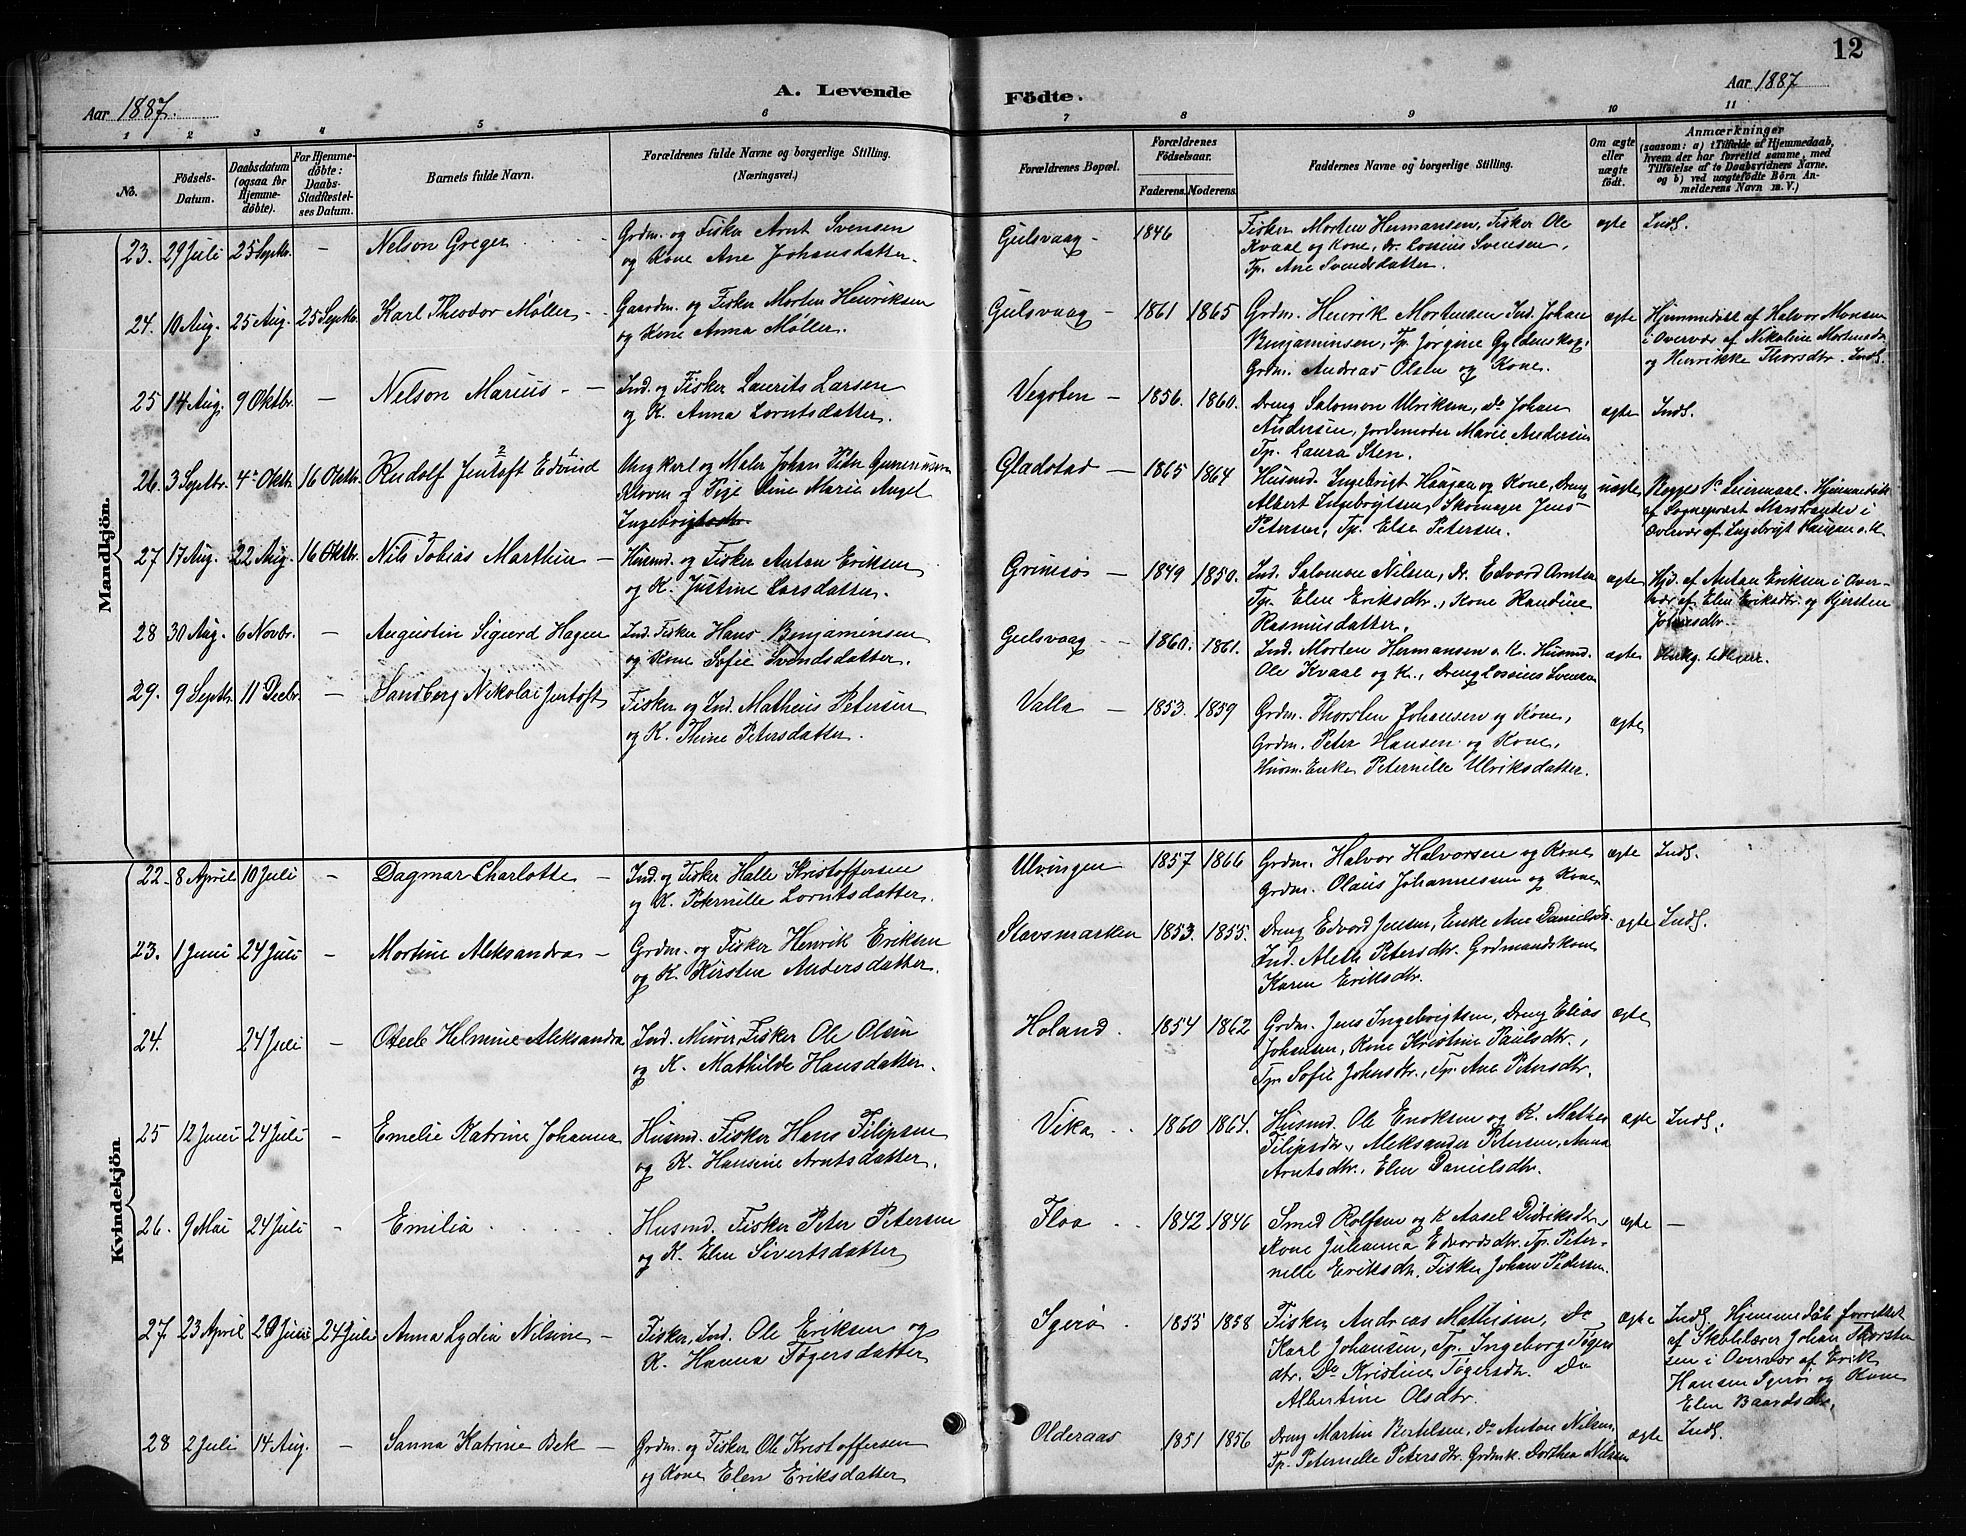 12
Aar 1887.
A. Levende
Födte.
Aar 1887
1 2 3 4 5 6 7 8 9 10 11
No.
Födsels-Datum.
Daabsdatum (ogsaa for Hjemmedöbte).
For Hjemmedöbte: Daabs-Stadfæstelses Datum.
Barnets fulde Navn.
Forældrenes fulde Navne og borgerlige Stilling. (Næringsvei.)
Forældrenes Bopæl.
Forældrenes Födselsaar.
Faderens. Moderens.
Faddernes Navne og borgerlige Stilling.
Om ægte eller uægte födt.
Anmærkninger
(saasom: a) i Tilfælde af Hjemmedaab, hvem der har forrettet samme, med Tilföielse af to Daabsvidners Navne, og b) ved uægtefödte Börn Anmelderens Navn m. V.)
Mandkjön.
23. 29 Juli 25 Septbr. – Nelson Greger Grdm. og Fisker Arnt Svensen Gulsvaag – 1846 Fisker Morten Hermansen, Fisker Ole ægte Inds.
og Kone Ane Johansdatter. Kvaal og Kone, Dr. Lossius Svensen,
Tp. Ane Svendsdatter.
24. 10 Aug. 25 Aug. 25 Septbr. Karl Theodor Møller – Gaardm. og Fisker Morten Henriksen Gulsvaag – 1861 1865 Grdm. Henrik Mortensen Ind. Johan ægte Hjemmedøbt af Halvor Monsen
og Kone Anna Møller. Benjaminsen, Tp. Jørgine Gyldenskog, i Overvær af Nikoline Mortensdr
Grdm. Andreas Olsen og Kone. og Henrikke Thorsdtr. Inds.
25 14 Aug. 9 Oktbr. – Nelson Marius – Ind. og Fisker Laurits Larsen Vegsten – 1856. 1860. Dreng Salomon Ulriksen, do Johan ægte Inds.
og K. Anna Lorntsdatter. Andersen, Jordemoder Marie Andersen
Tp. Laura Sten.
26. 3 Septbr. 4de Oktbr. 16 Oktbr. Rudolf Jentoft Edvind Ungkarl og Maler Johan Peter Gladstad – 1865 1864 Husmd. Ingebrigt Haagen og Kone, Dreng uægte
og Pige Line Marie Angel Albert Ingebrigtsen, Skomager Jens
Ingebrigtsdtr. Petersen, Tp. Else Petersen. Overvær af Ingebrigt Haugen o. K.
27 17 Aug. 22 Aug. 16 Oktbr. Nils Tobias Marthin – Husmd. og Fisker Anton Eriksen Grimsø – 1849 1850. Ind. Salomon Nilsen, Dr. Edvard Arntsen ægte Hjd. af Anton Eriksen i Over-
og K. Justine Larsdatter. Tp. Elen Eriksdtr., Kone Randine vær af Elen Eriksdtr. og Kjersten
Rasmusdatter. Johnsdtr.
28 30 Aug. 6 Novbr. – Augustin Sigurd Hagen Ind. Fisker Hans Benjaminsen Gulsvaag – 1860. 1861. Ind. Morten Hermansen o. K. Husmd. ægte
og Kone Sofie Svendsdatter. Ole Kvaal og K., Dreng Lossius Svensen
29. 9 Septbr. 11 Decbr. – Sandberg Nikolai Jentoft Fisker og Ind. Matheus Petersen Valla – 1853. 1859 Grdm. Thorsten Johansen og Kone, ægte
og K. Thine Petersdatter. Grdm. Peter Hansen og Kone,
Husm. Enke Peternille Ulriksdatter.
Kvindekjön
22. 8 April 10 Juli – Dagmar Charlotte – Ind. og Fisker Halle Kristoffersen Ulvingen 1857 1866 Grdm. Halvor Halvorsen og Kone ægte Inds.
og K. Peternille Lorntsdatter. Grdm. Olaus Johannessen og Kone
23. 1 Juni 24 Juli – Mortine Aleksandra – Grdm. og Fisker Henrik Eriksen Slavsmarken 1853. 1855. Dreng Edvard Jensen, Enke Ane Danielsdtr. ægte Inds.
og K. Kirsten Andersdatter. Ind. Aleth Petersdtr. Grdmandskone
Karen Eriksdtr.
24. 24 Juli – Helmine Aleksandra Ind. Murer, Fisker Ole Olsen Holand. 1854 1862 Grdm. Jens Ingebrigtsen, Dreng Elias ægte
og K. Mathilde Hansdatter. Johansen, Kone Kristine Paulsdtr.,
Tp. Sofie Johnsdtr., Tp. Ane Petersdtr.
25 12 Juni 24 Juli – Emelie Katrine Johanna Husmd. Fisker Hans Filipsen Vika 1860 1864. Husmd. Ole Enoksen og K. Mathea ægte Inds.
og K. Hansine Arntsdatter. Filipsdtr., Aleksander Petersen, Anna
Arntsdtr., Elen Danielsdtr.
26. 9 Mai 24 Juli – Emilia Husmd. Fisker Peter Petersen Floa 1842 1846 Smed Rolfsen og K Aasel Didriksdtr. ægte –
og K. Elen Sivertsdatter Kone Julianna Edvardsdtr. Tp. Peter-
nille Eriksdtr. Fisker Johan Pedersen.
27. 23 April 20 Juni 24 Juli Anna Lydia Nilsine – Fisker, Ind. Ole Eriksen og Igerø 1855 1858 Fisker Andreas Mathisen, do ægte Inds. Hjemmedåb forrettet
K. Hanna Tøgersdatter Karl Johansen, Tp. Ingeborg Tøgers af Skolelærer Johan Thorsten-
dtr. Do Kristine Tøgersdtr. Do sen i Overvær af Erik
Albertine Olsdtr. Hansen Igerø og Kone
Elen Baardsdtr.
28 2 Juli 14 Aug. – Sanna Katrine Bek – Grdm. og Fisker Ole Kristoffersen Olderaas 1851 1856 Dreng Martin Bertelsen, do Anton Nilsen, ægte Inds.
og Kone Elen Eriksdatter Tp. Peternelle Petersdtr. Grdmk. Dorthea Nilsen